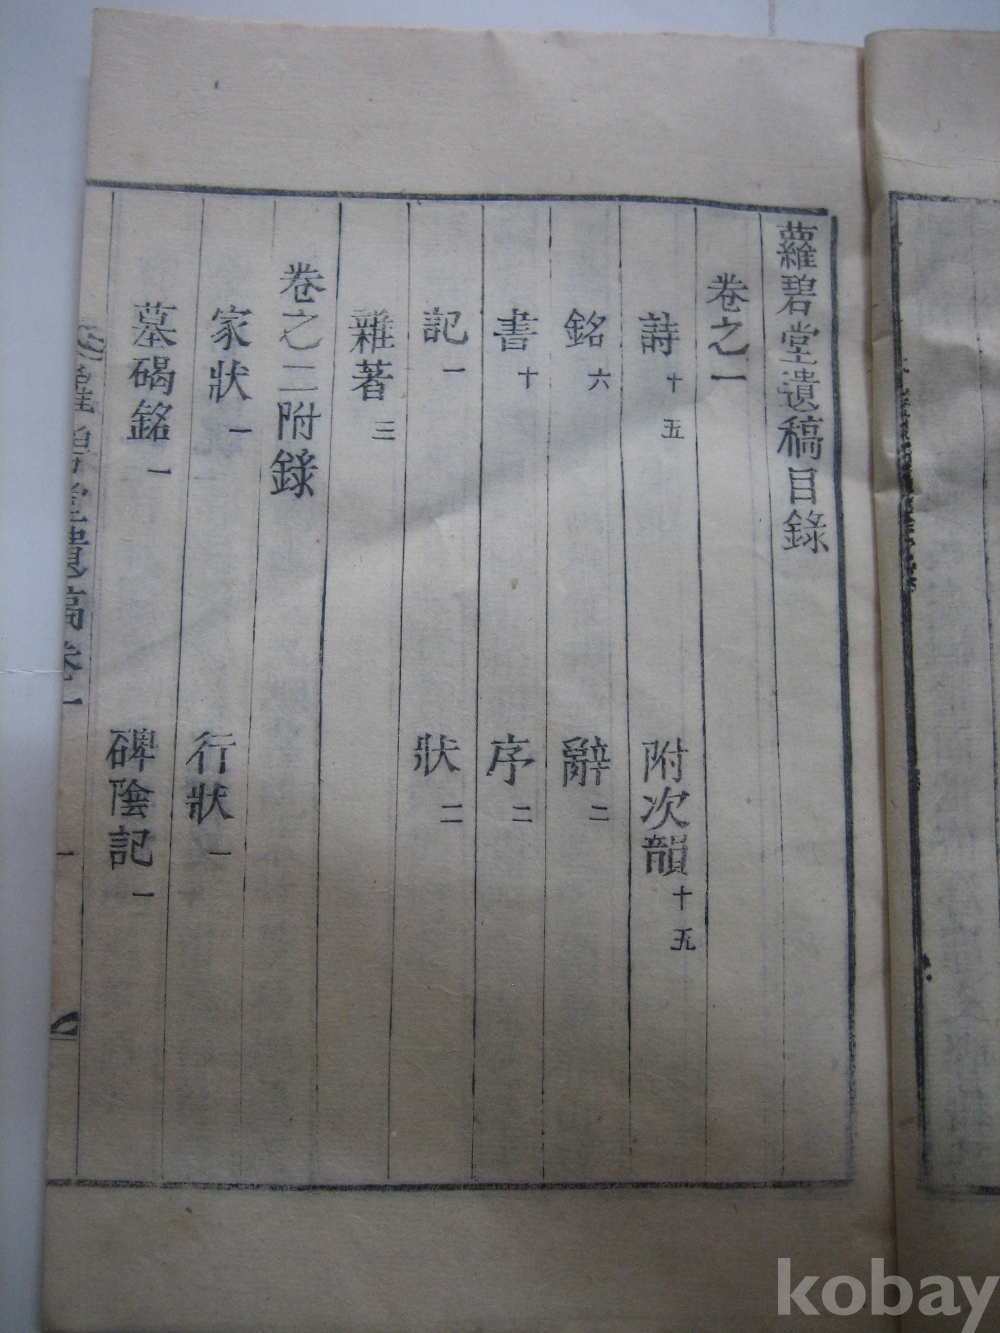 蘿碧堂遺稿目錄
卷之一
詩 十五 附次韻 十五
銘 六 辭 二
書 十 序 二
記 一 狀 二
雜著 三
卷之二附錄
家狀 一 行狀 一
墓碣銘 一 碑陰記 一
蘿碧堂遺稿卷一 一
kobay